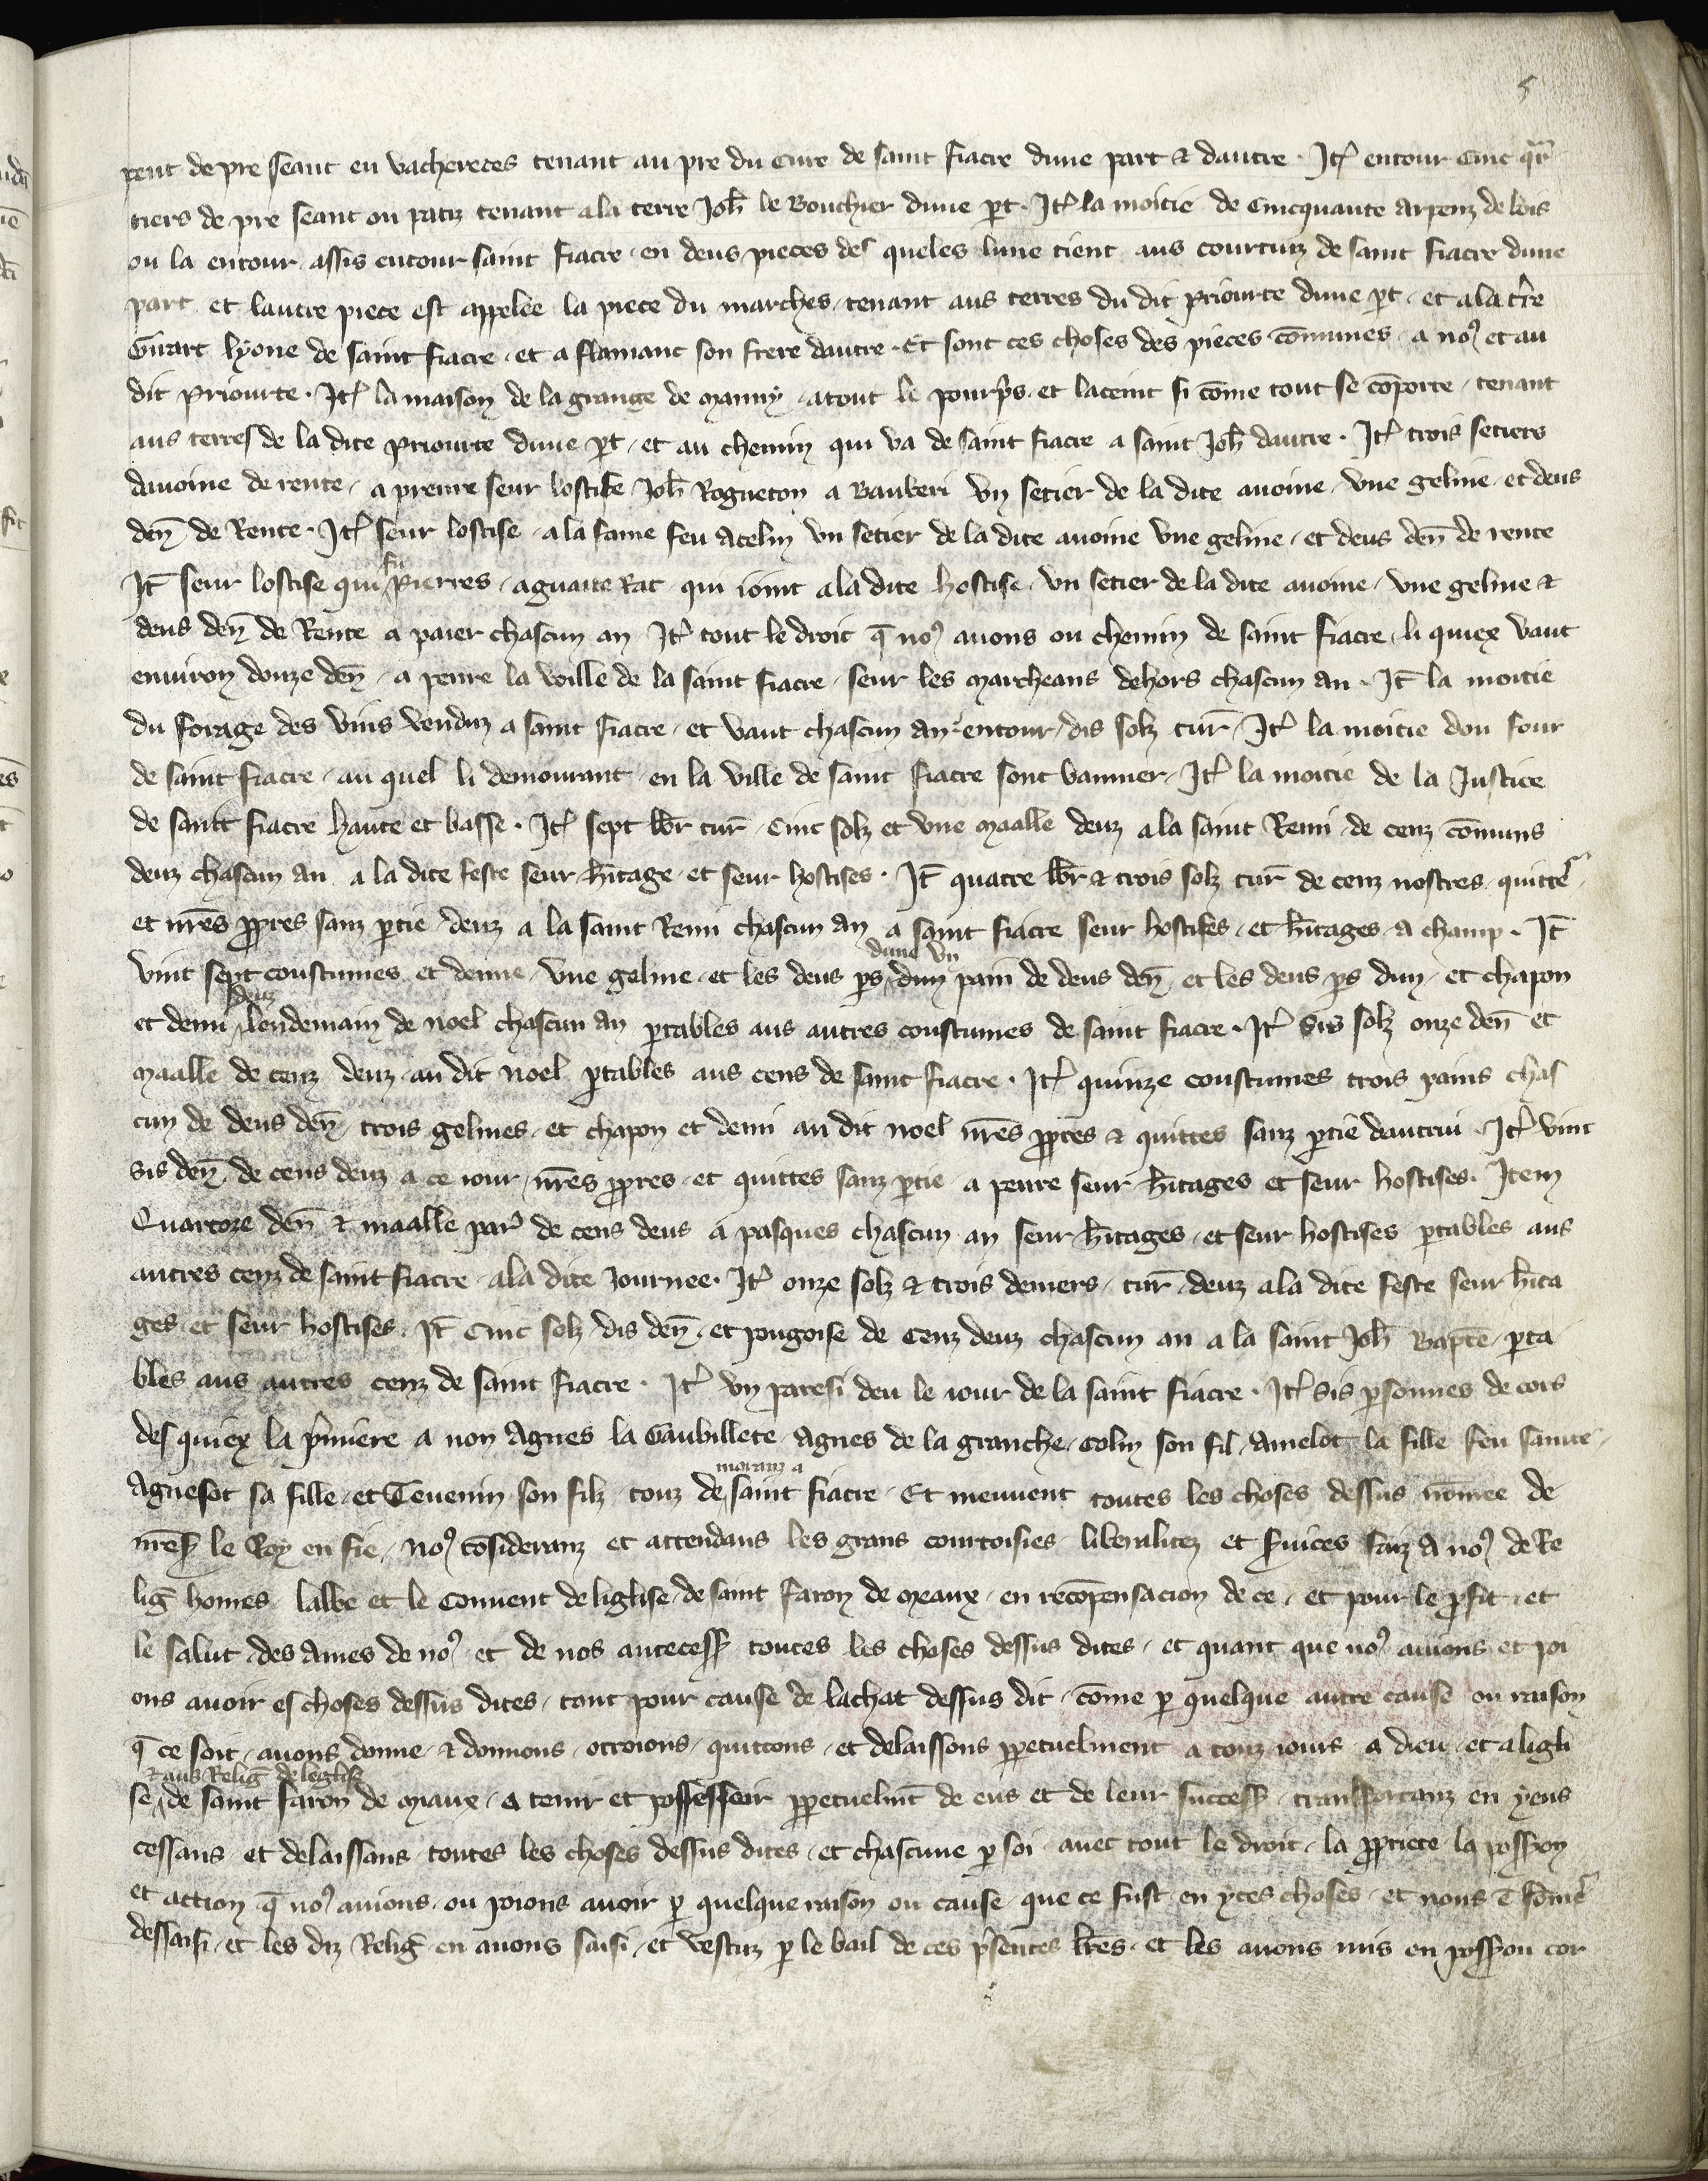 5
pent de pre seant en vachereces tenant au pre du cure de saint fiacre dune part & dautre . It̃ entour cinc q̃r
tiers de pre seant ou patiz tenant a la terre Joh̃ le Bouchier dune p̱t . It̃ la moitie de cincquante arpenz de bois
ou la entour assis entour saint fiacre en deus pieces des queles lune tient aus courtuiz de saint fiacre dune
part et lautre piece est appelee la piece du marches tenant aus terres du dit priourte dune p̱t et a la tr̃e
Girart lyone de saint fiacre et a flamanc son frere dautre . Et sont ces choses des pieces cōmunes a noꝰ et au
dit priourte . It̃ la maison de la grange de manny atout le pourp̃s et laceint si cōme tout se cōporte tenant
aus terres de la dite priourte dune p̱t et au chemin qui va de saint fiacre a saint Joh̃ dautre . It̃ trois setiers
davoine de rente a prenre seur lostise Joh̃ Rogneton a Bauberi vn setier de la dite avoine vne geline et deus
den̄ de Rente . It̃ seur lostise a la fame feu Acelin vn setier de la dite avoine vne geline et deus den̄ de rente
It̃ seur lostise qui fu pierres aguaite Rat qui ioint a la dite hostise vn setier de la dite avoine vne geline &
deus den̄ de Rente a paier chascun an It̃ tout le droit q̄ noꝰ avons ou chemin de saint fiacre li quiex vaut
environ douze den̄ a penre la voille de la saint fiacre seur les marcheans dehors chascun an . It̃ la moitie
du forage des vins venduz a saint fiacre et vaut chascun an entour dis solz tur̃ It̃ la moitie dou four
de saint fiacre au quel li demourant en la ville de saint fiacre sont bannier It̃ la moitie de la Justice
de saint fiacre haute et basse . It̃ sept lb̃r tur̃ cinc solz et vne maalle deuz a la saint Remi de cenz cōmuns
deuz chascun an a la dite feste seur h̃itage et seur hostises . It̃ quatre lb̃r & trois solz tur̃ de cenz nostres quitte
et nr̃es p̱pres sanz p̱tie deuz a la saint Remi chascun an a saint fiacre seur hostises et h̃itages a champ . It̃
vint sept coustumes et demie vne geline et les deus p̱s dune vn dun pain de deus den̄ et les deus p̱s dun et chapon
et demi deuz lendemain de noel chascun an p̱tables aus autres coustumes de saint fiacre . It̃ sis solz onze den̄ et
maalle de cenz deuz au dit noel p̱tables aus cens de saint fiacre . It̃ quinze coustumes trois pains chas
cun de deus den̄ trois gelines et chapon et demi au dit noel nr̃es p̱pres & quittes sanz p̱tie dautrui It̃ vint
sis den̄ de cens deuz a ce iour nr̃es p̱pres et quittes sanz p̱tie a penre seur h̃itages et seur hostises . Item
Quartoze den̄ & maalle par̃ de cens deus a pasques chascun an seur h̃itages et seur hostises p̱tables aus
autres cenz de saint fiacre a la dite Journee . It̃ onze solz & trois deniers tur̃ deuz a la dite feste seur h̃ita
ges et seur hostises . It̃ cinc solz dis den̄ et pougoise de cenz deuz chascun an a la saint Joh̃ Bapt̃e p̱ta
bles aus autres cenz de saint fiacre . It̃ vn paresi deu le iour de la saint fiacre . It̃ sis p̱sonnes de cors
des quiex la p̃miere a non Agnes la Gaubillete Agnes de la granche Colin son fil Amelot la fille feu
Agnesot sa fille et Tevenin son filz touz de moranz a saint fiacre Et meuvent toutes les choses dessus nōmee de
nr̃eS le Roy en fie noꝰ cōsideranz et attendans les grans courtoisies liberalitez et s̃vices faiz a noꝰ de Re
lig̃ homes labbe et le Convent de liglise de saint faron de meaux en recōpensacion de ce et pour le p̱fit et
le salut des ames de noꝰ et de nos antecess̃ toutes les choses dessus dites et quant que noꝰ avions et poi
ons avoir es choses dessus dites tant pour cause de lachat dessus dit cōme p̱ quelque autre cause ou raison
q̄ ce soit avons donne & donnons otroions quittons et delaissons p̱petuelment a touz iours a dieu et a ligli
se & aus Relig̃ de leglise de saint faron de miaux a tenir et possesseoir p̱petuelm̃t de eus et de leur success̃ transportanz en yeus
cessans et delaissans toutes les choses dessus dites et chascune p̱ soi avec tout le droit la p̱priete la poss̃ion
et action q̄ noꝰ avions ou poions avoir p̱ quelque raison ou cause que ce fust en yces choses et nous
dessaisi et les diz Relig̃ en avons saisi et vestuz p̱ le bail de ces p̃sentes lr̃es et les avons mis en poss̃ion cor